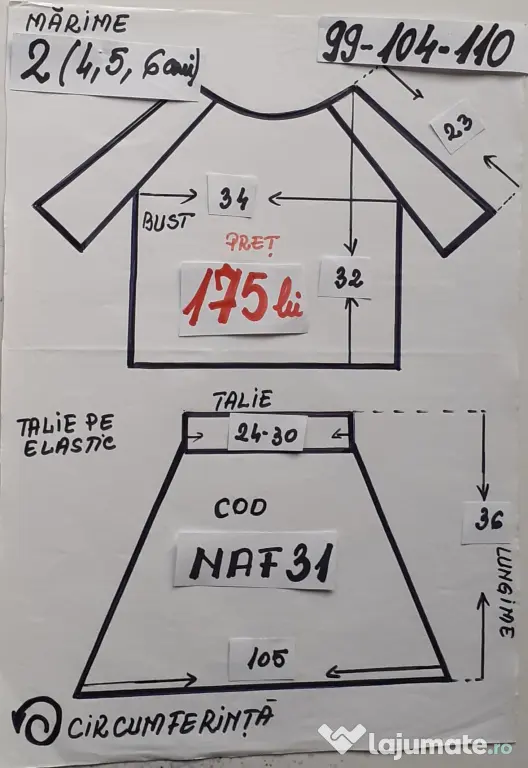 MĂRIME
2 (4,5, 6 ani)
99-104-110
23
34
BUST
PREȚ
175 lei
32
TALIE
TALIE PE
ELASTIC
24-30
COD
36
NAF31
LUNGIME
105
CIRCUMFERINȚĂ
lajumate.ro